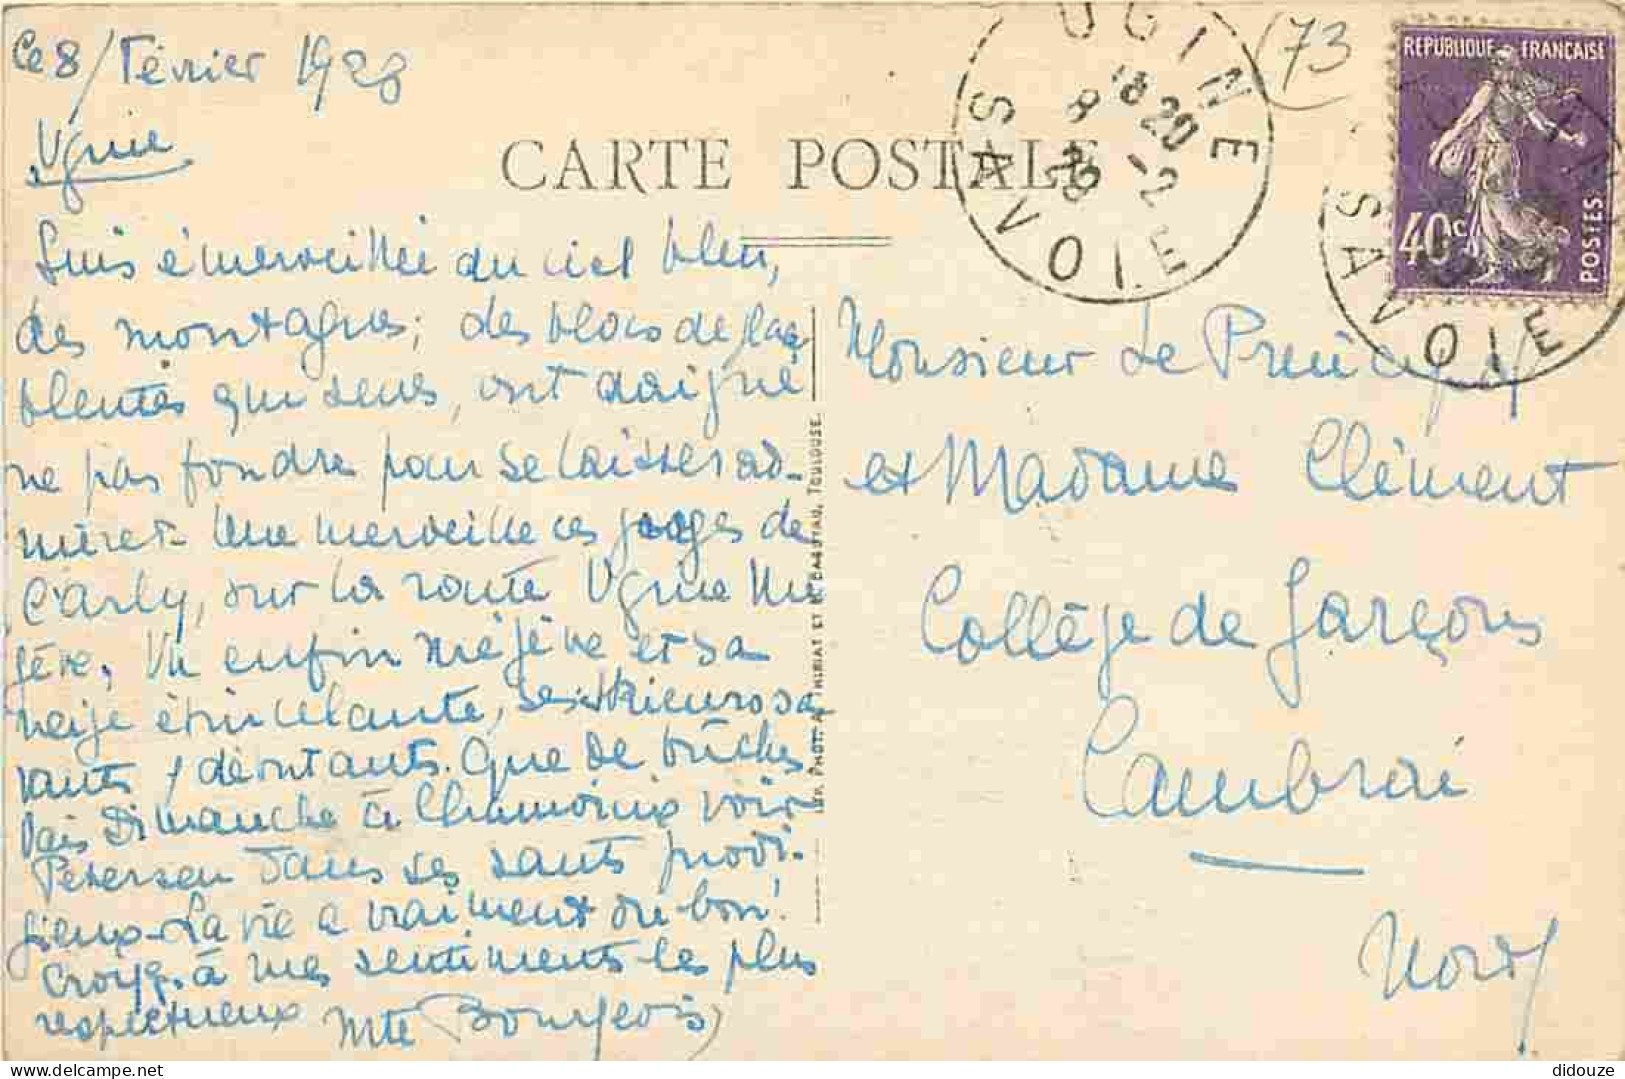 Ce 8/Février 1928
Ugine
CARTE POSTALE
UGINE
18 20
8 -2
28
SAVOIE
(73
REPUBLIQUE FRANÇAISE
40c
POSTES
SAVOIE
Suis émerveillée du ciel bleu,
des montagnes; des blocs de glace
bleutés qui seuls, ont daigné
ne pas fondre pour se laisser ad-
mirer. Une merveille ces gorges de
l'Arly, sur la route Ugine Me
gève. Vu enfin Mégève et sa
neige étincelante, ses skieurs sa
vants, déroutants. Que de bûches
Vais Dimanche à Chamonix voir
Petersen dans ses sauts prodi-
gieux. La vie a vraiment du bon!
Croyez à mes sentiments les plus
respectueux Mte Bourgeois
IMP. PHOT. A. THIRIAT ET TOULOUSE.
Monsieur Le Principal
et Madame Clément
Collège de Garçons
Cambrai
Nord
didouze @ Delcampe.net